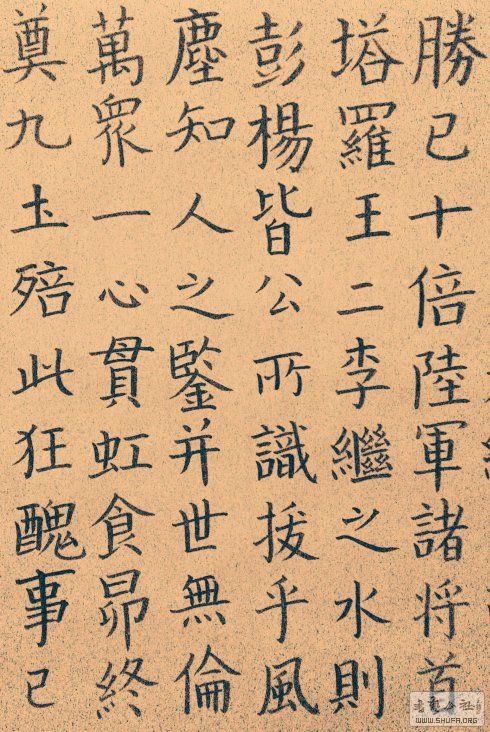 勝已十倍陸軍諸将首
塔羅王二李繼之水則
彭楊皆公所識拔乎風
塵知人之鑒并世無倫
萬衆一心貫虹食昴終
奠九圡殕此狂醜事已
WWW.SHUFA.ORG